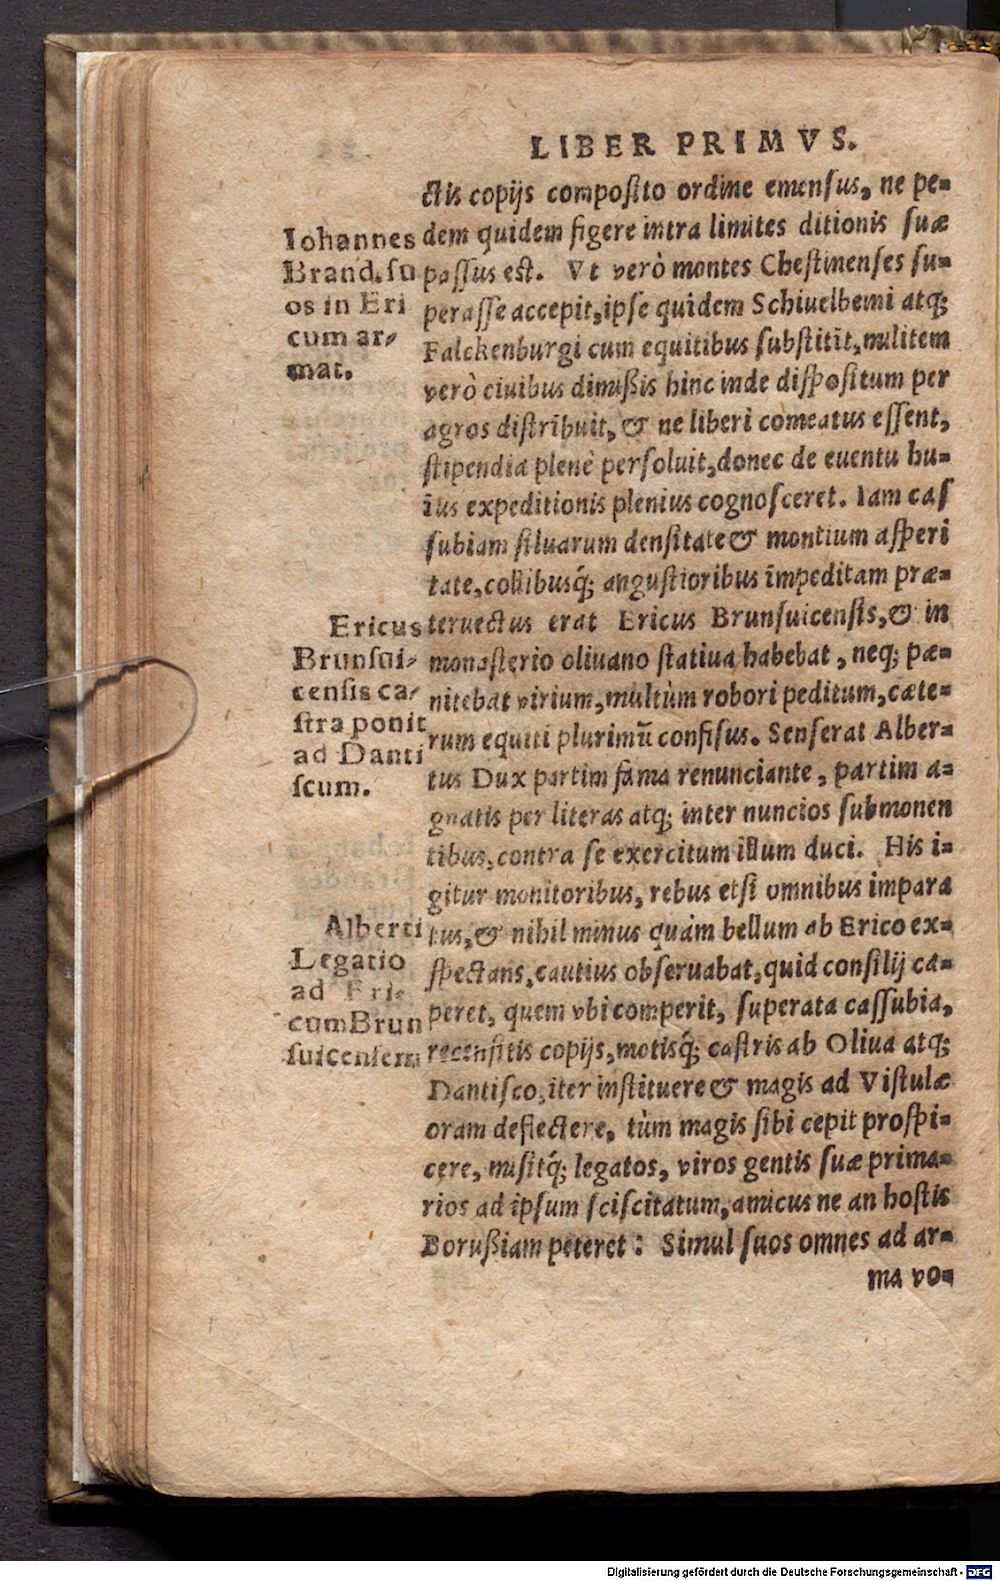 LIBER PRIMVS.
ctis copijs composito ordine emensus, ne pe-
dem quidem figere intra limites ditionis suæ
passus est. Vt verò montes Chestinenses su-
perasse accepit, ipse quidem Schiuelbemi atq;
Falckenburgi cum equitibus substitit, militem
verò ciuibus dimißis hinc inde dispositum per
agros distribuit, & ne liberi comeatus essent,
stipendia plenè persoluit, donec de euentu hu-
ius expeditionis plenius cognosceret. Iam cas
subiam siluarum densitate & montium asperi
tate, collibusq́; angustioribus impeditam præ-
teruectus erat Ericus Brunsuicensis, & in
monasterio oliuano statiua habebat, neq; pæ-
nitebat virium, multùm robori peditum, cæte-
rum equiti plurimū confisus. Senserat Alber-
tus Dux partim fama renunciante, partim a-
gnatis per literas atq; inter nuncios submonen
tibus, contra se exercitum illum duci. His i-
gitur monitoribus, rebus etsi omnibus impara
tus, & nihil minus quàm bellum ab Erico ex-
spectans, cautius obseruabat, quid consilij ca-
peret, quem vbi comperit, superata cassubia,
recensitis copijs, motisq́; castris ab Oliua atq;
Dantisco, iter instituere & magis ad Vistulæ
oram deflectere, tùm magis sibi cepit prospi-
cere, misitq́; legatos, viros gentis suæ prima-
rios ad ipsum sciscitatum, amicus ne an hostis
Borußiam peteret: Simul suos omnes ad ar-
ma vo-
Iohannes
Brand. su
os in Eri
cum ar-
mat.
Ericus
Brunsui-
censis ca-
stra ponit
ad Danti
scum.
Alberti
Legatio
ad Eri-
cum Brun
suicensem
Digitalisierung gefördert durch die Deutsche Forschungsgemeinschaft - DFG